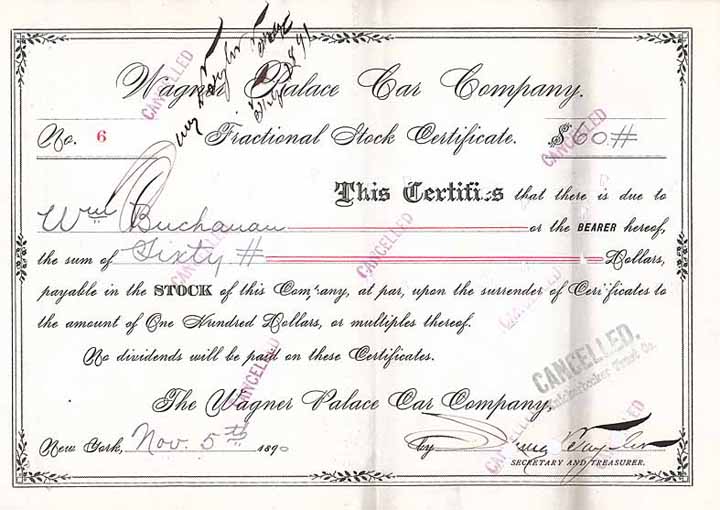 Wagner Palace Car Company.
No. 6 Fractional Stock Certificate. $60 #
This Certifies that there is due to
Wm Buchanan or the BEARER hereof,
the sum of Sixty # Dollars,
payable in the STOCK of this Company, at par, upon the surrender of Certificates to
the amount of One Hundred Dollars, or multiples thereof.
No dividends will be paid on these Certificates.
The Wagner Palace Car Company,
New York, Nov. 5th 1890 by Taylor
SECRETARY AND TREASURER.
CANCELLED
CANCELLED
CANCELLED
CANCELLED
CANCELLED
CANCELLED
CANCELLED
CANCELLED
CANCELLED.
Knickerbocker Trust Co.